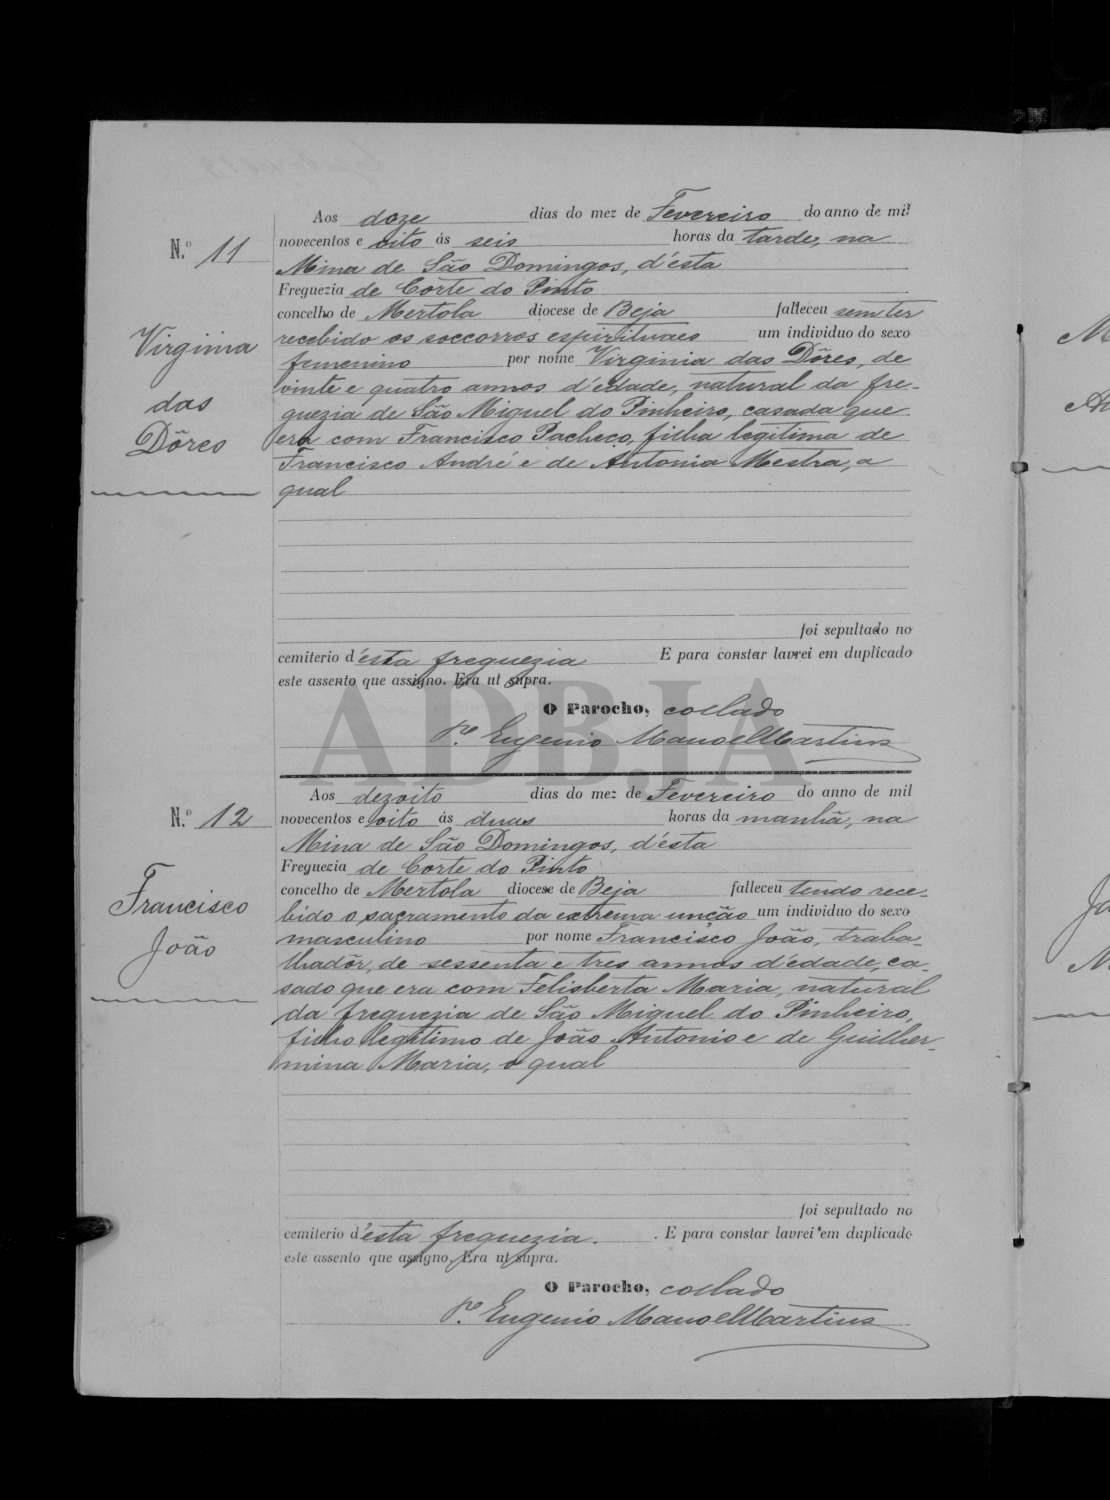 Aos doze dias do mez de Fevereiro do anno de mil
N.º 11
novecentos e oito ás seis horas da tarde, na
Mina de São Domingos, d'ésta
Freguezia de Côrte do Pinto
concelho de Mertola diocese de Beja falleceu sem ter
recebido os soccorros espirituaes um individuo do sexo
femenino por nome Virginia das Dôres, de
vinte e quatro annos d'edade, natural da fre-
guezia de São Miguel do Pinheiro, casada que
era com Francisco Pacheco, filha legitima de
Francisco André e de Antonia Mestra, a
qual
Virginia
das
Dôres
foi sepultado no
cemiterio d'ésta freguezia E para constar lavrei em duplicado
este assento que assigno. Era ut supra.
O Parocho, collado
P.e Eugenio Manoel Martins
ADBJA
Aos dezoito dias do mez de Fevereiro do anno de mil
N.º 12
novecentos e oito ás duas horas da manhã, na
Mina de São Domingos, d'ésta
Freguezia de Côrte do Pinto
concelho de Mertola diocese de Beja falleceu tendo rece-
bido o sacramento da extrema unção um individuo do sexo
masculino por nome Francisco João, traba-
lhadôr, de sessenta e tres annos d'edade, ca-
sado que era com Felisberta Maria, natural
da freguezia de São Miguel do Pinheiro,
filho legitimo de João Antonio e de Guilher-
mina Maria, o qual
Francisco
João
foi sepultado no
cemiterio d'ésta freguezia. E para constar lavrei em duplicado
este assento que assigno. Era ut supra.
O Parocho, collado
P.e Eugenio Manoel Martins